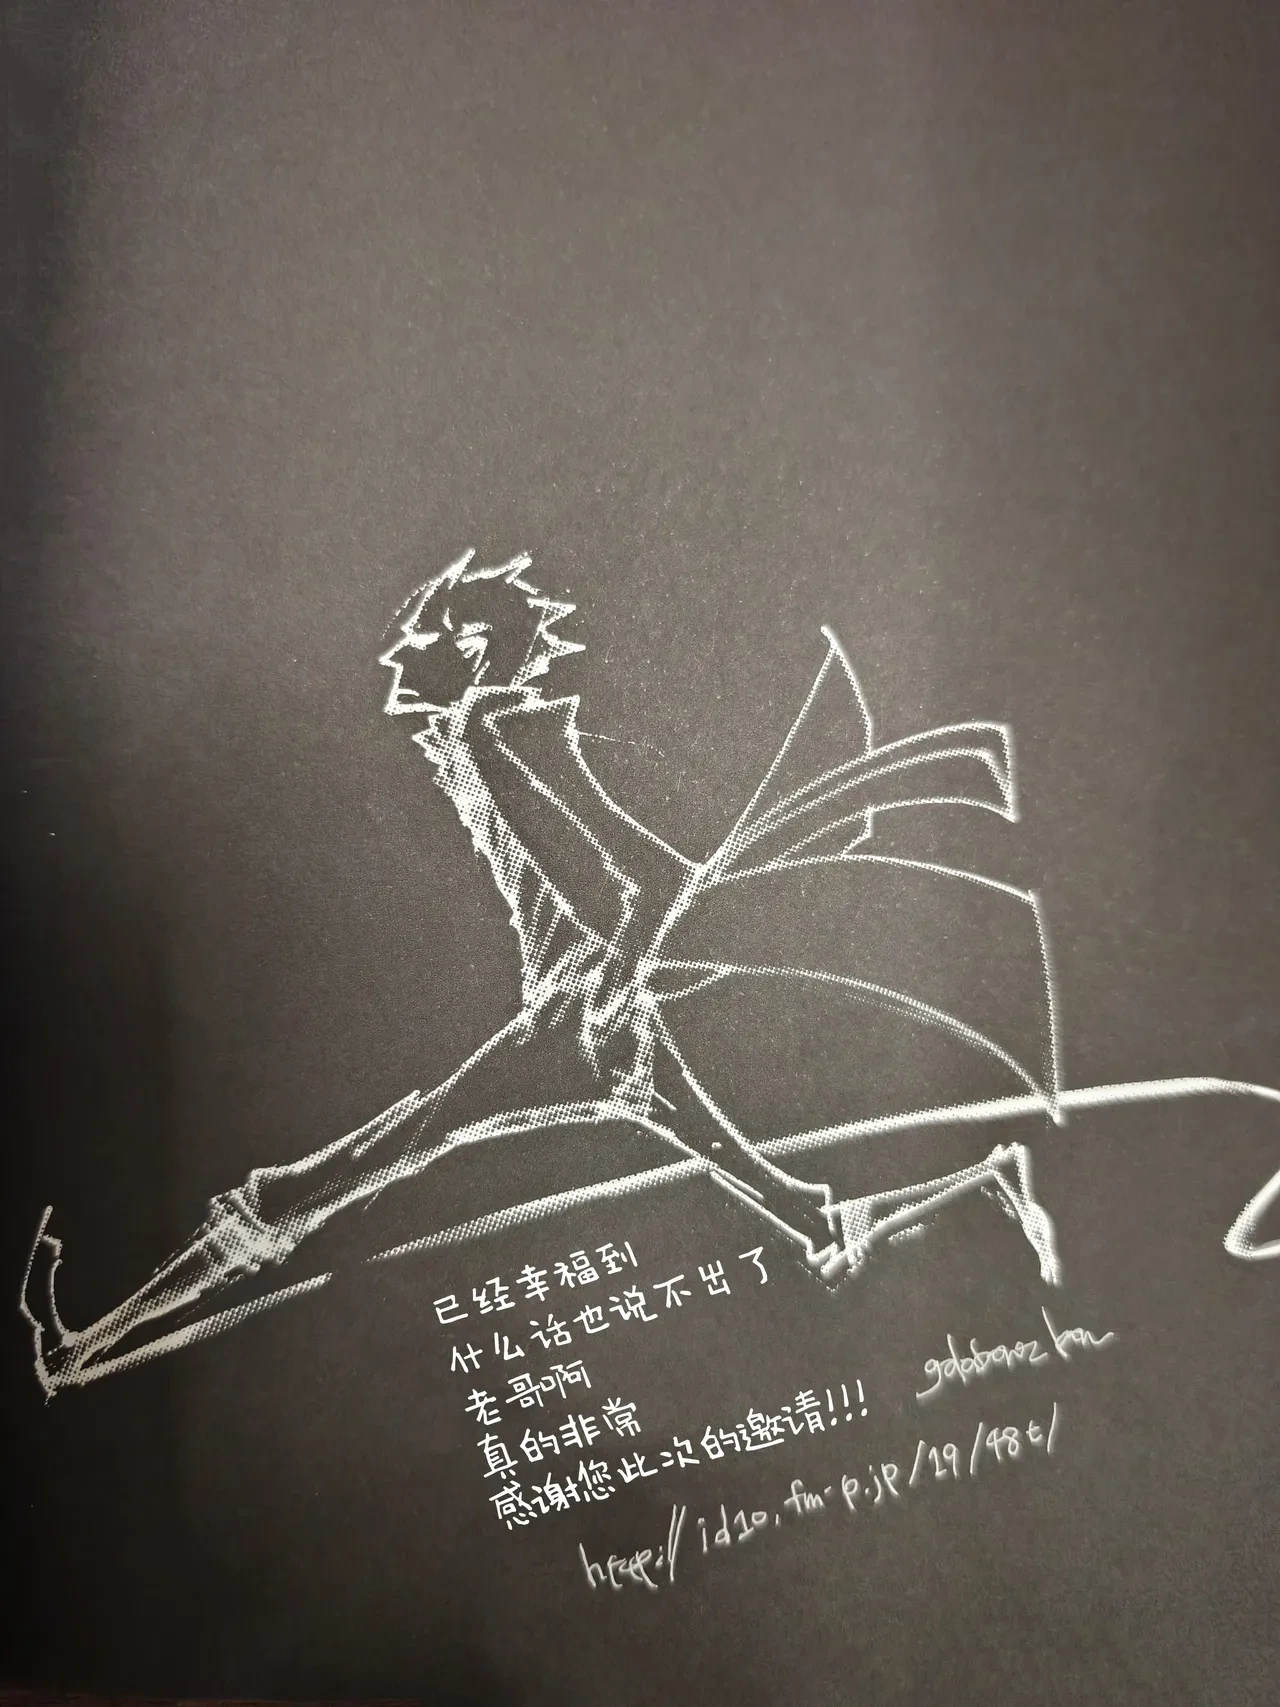 已经幸福到
什么话也说不出了
老哥啊
真的非常
感谢您此次的邀请!!!
http://id10.fm-p.jp/19/48t/